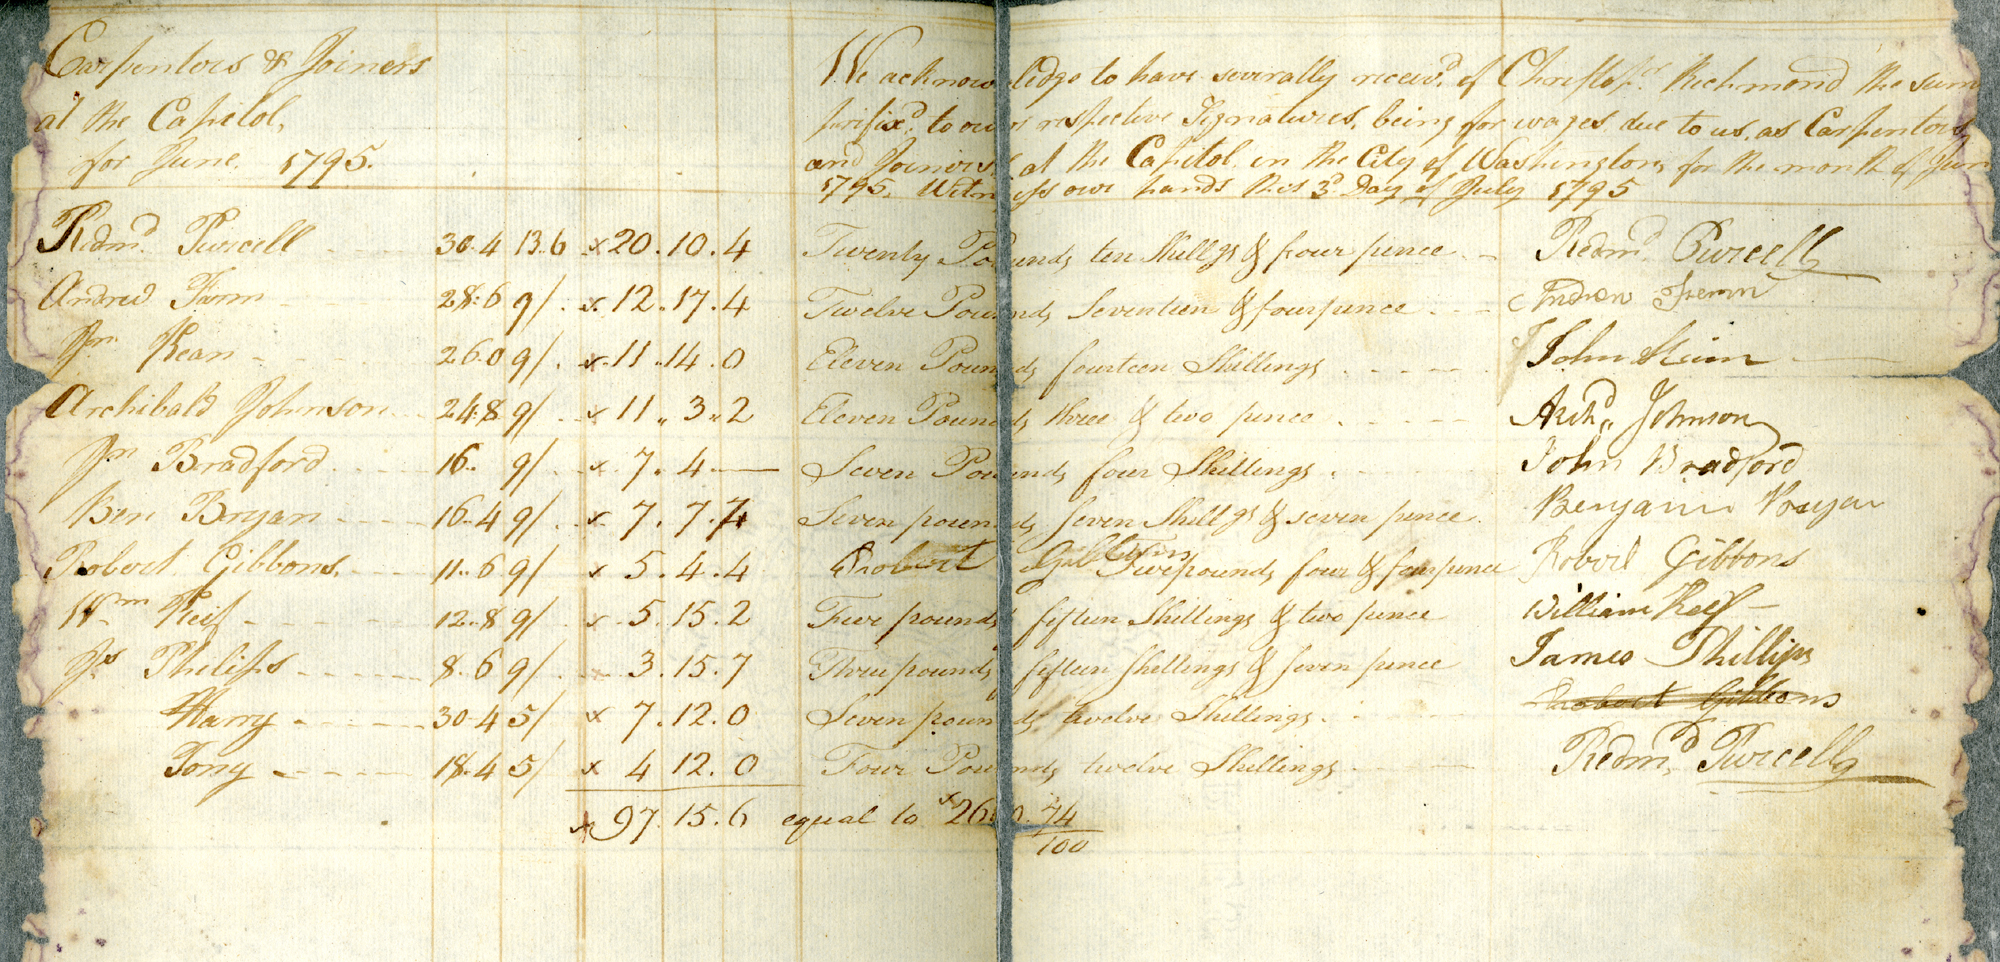 Carpenters & Joiners
at the Capitol,
for June. 1795.
We acknowledge to have severally receivd. of Christopr. Richmond the sum
prefixd. to our respective Signatures, being for wages due to us, as Carpenters,
and Joiners, at the Capitol in the City of Washington, for the month of June
1795. Witness our hands this 3d. Day of July 1795
Redmd. Purcell 30..4 13..6 x 20.10.4 Twenty Pounds ten Shillgs & four pence Redmd. Purcell
Andrew 28..6 9/. x. 12.17.4 Twelve Pounds Seventeen & fourpence Andrew
Jn. Kean 26.0 9/. x. 11..14.0 Eleven Pounds fourteen Shillings John
Archibald Johnson 24..8 9/ x 11..3..2 Eleven Pounds three & two pence Archd,, Johnson
Jn Bradford 16.. 9/. x 7..4 Seven Pounds four Shillings John Bradford
Ben Bryan 16..4 9/. x 7.7.7 Seven pounds seven Shillgs & seven pence Benjamin Bryan
Robert Gibbons. 11..6 9/ x 5.4.4 Five pounds four & fourpence Robert Gibbons
Wm Reif 12..8 9/ x 5.15.2 Five pounds fifteen Shillings & two pence William Reif
Js. Philips 8.6 9/ 3.15.7 Three pounds fifteen shillings & seven pence James Phillips
Harry 30..4 5/ x 7.12.0 Seven pounds twelve Shillings. Robert Gibbons
Tony 18..4 5/ x 4 12.0 Four Pounds twelve Shillings Redmd. Purcell
x 97.15.6 equal to x 260.74/100